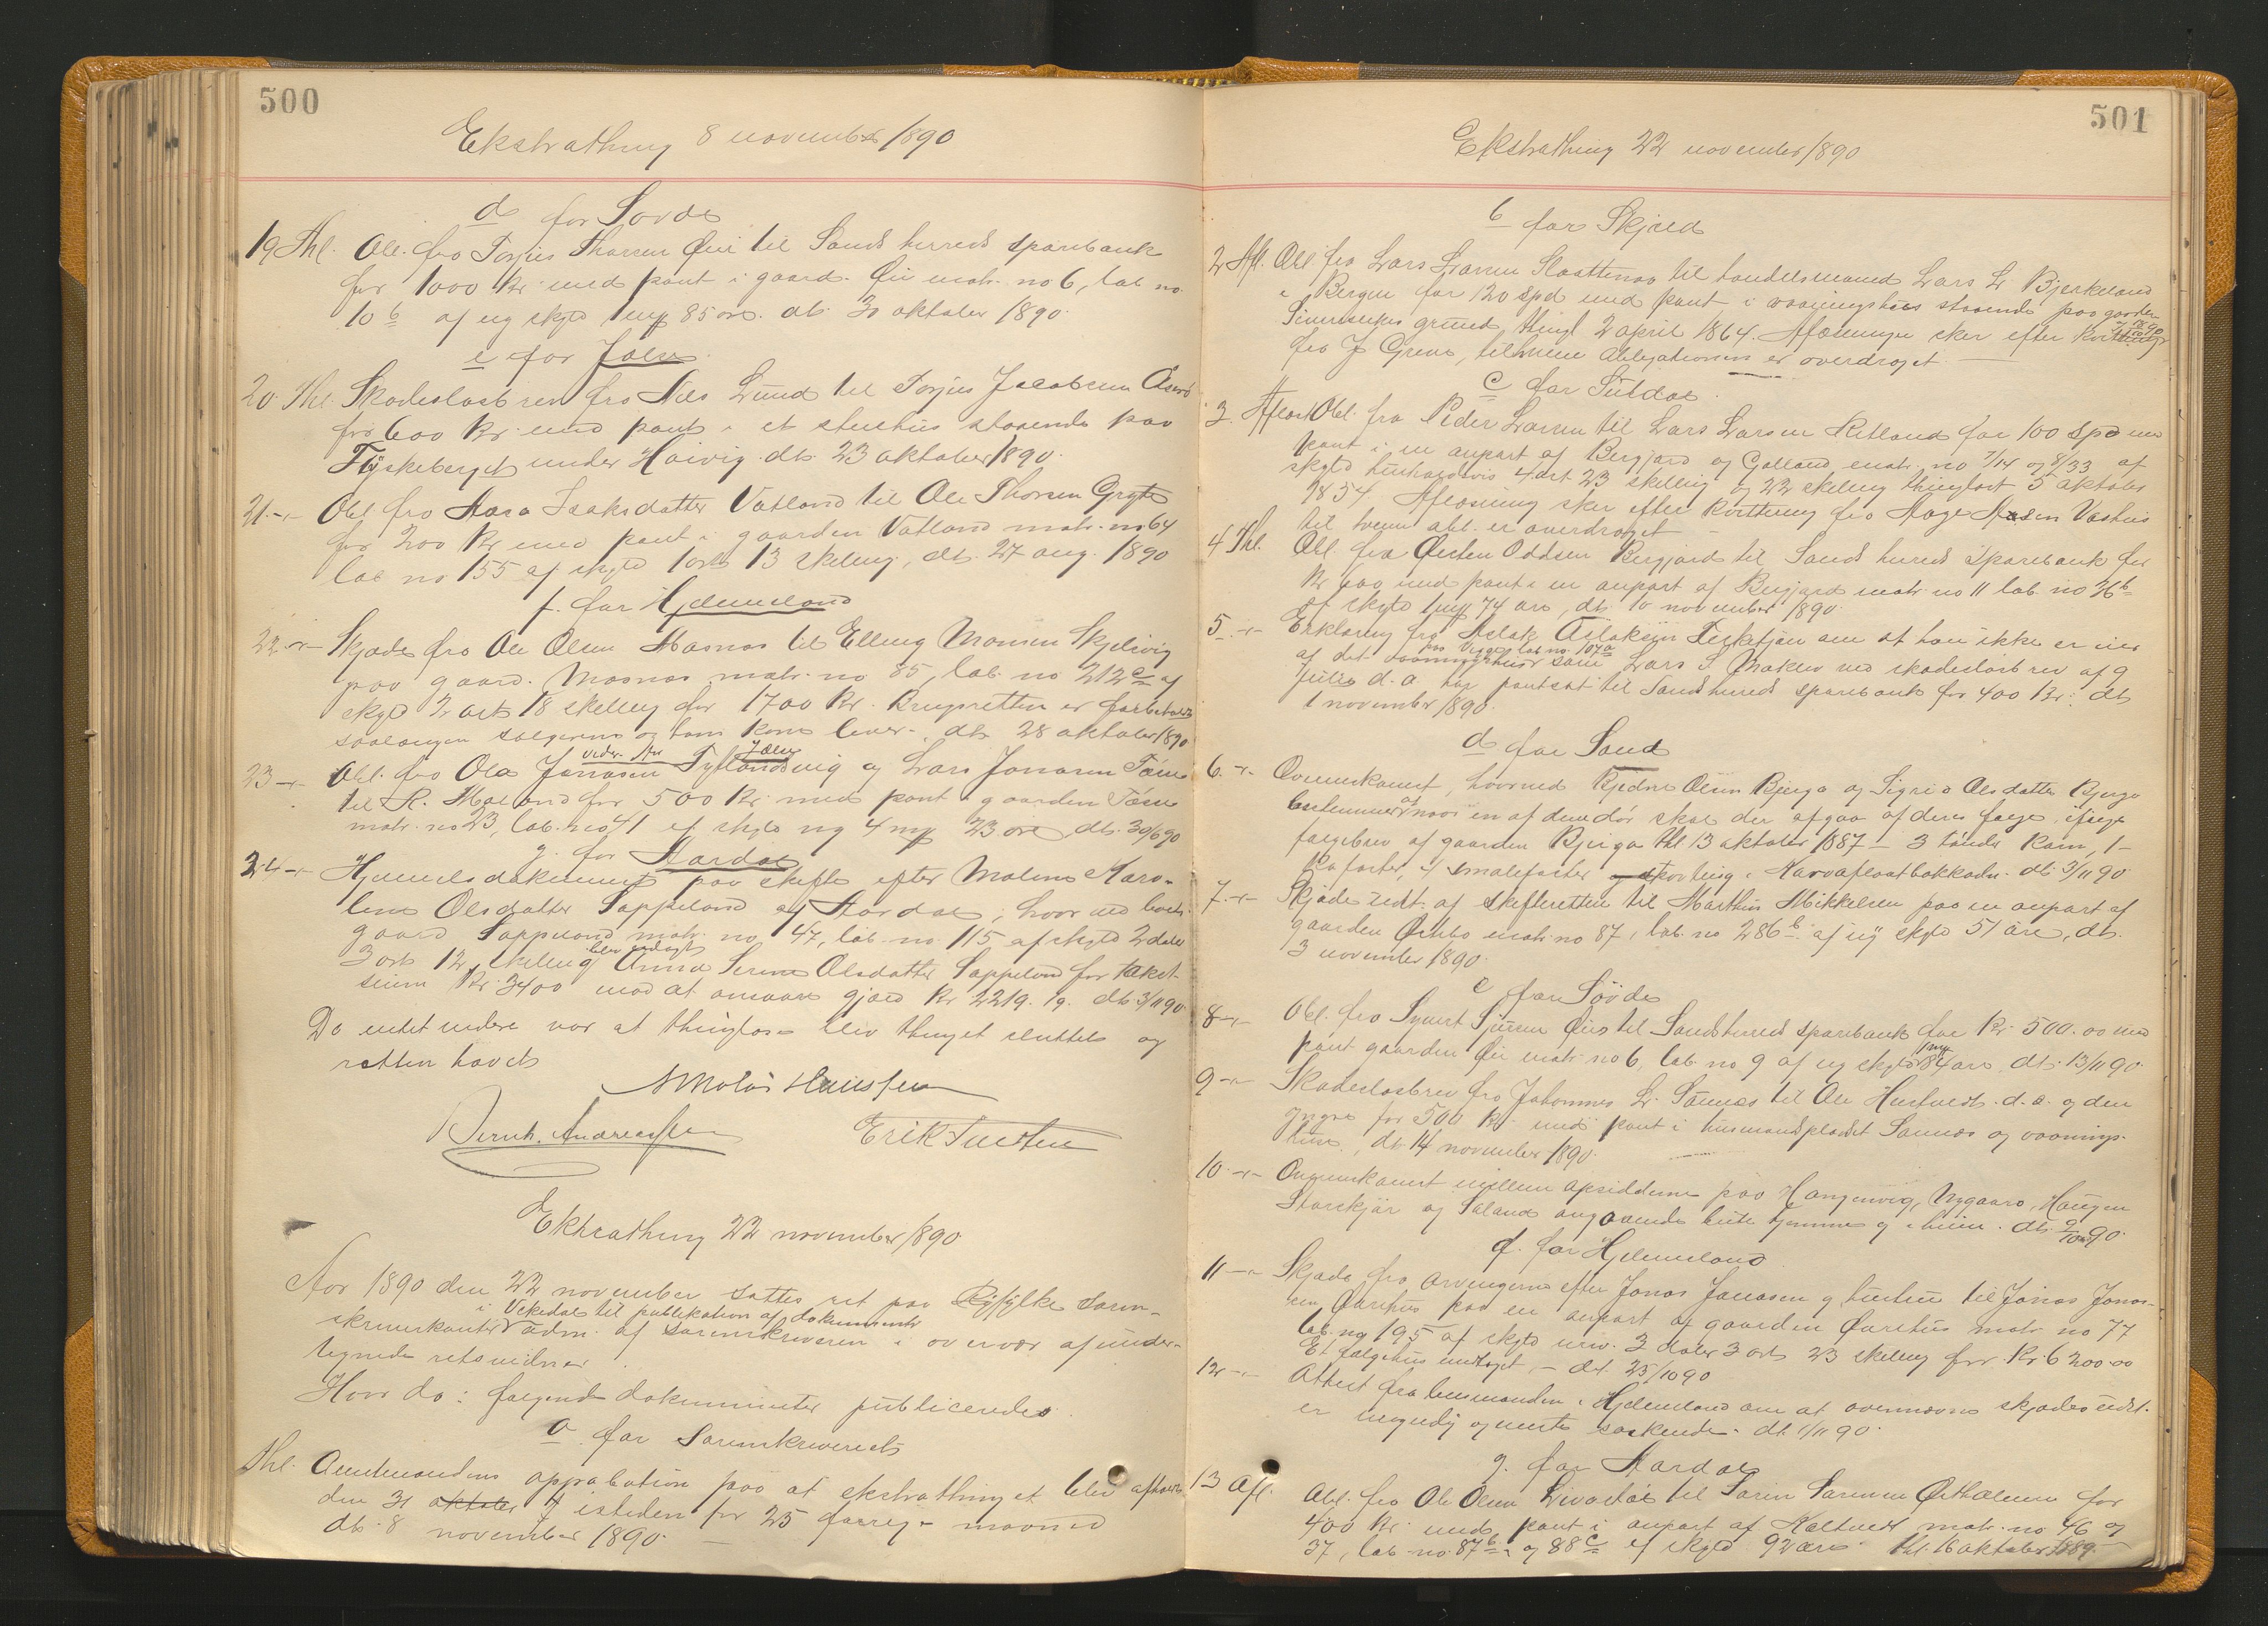 500
Ekstrathing 8 november 1890
d for Sovde
19 Thl. Obl. fra Torjus Thorsen Øie til Sands herreds sparebank
for 1000 kr. med pant i gaard. Øie matr. no 6, løb no
10 b af ny skyld 1 mrk 85 øre. dt. 30 oktober 1890.
e for Jelse
20. Thl. Skadesløsbrev fra Nils Lund til Torjus Jacobsen
for 600 kr. med pant i et stuehus staaende paa
Tyskeberget under Haivig. dt. 23 oktober 1890.
21. -"- Obl. fra Aasa Isaksdatter Vatland til Ole Thorsen Grytе
for 200 kr med pant i gaarden Vatland matr. no 64
løb no 155 af skyld 1 ort 13 skilling, dt. 27 aug. 1890
f. for Hjelmeland
22 -"- Skjøde fra Ole Olsen Masnes til Elling Monsen Skjelvig
paa gaard. Mosnes matr. no 85, løb. no 212 c af
skyld 2 ort 18 skilling for 1700 kr. Brugsretten er forbeholdt
saalænge sælgeren og hans kone lever. dt. 28 oktober 1890
23 -"- Obl. fra Ola Jonasen Tytlandsvig og Lars Jonasen
til R. Mæland for 500 kr. med pant i gaarden
matr. no 23, løb. no 41 af skyld ny 4 mrk 23 øre dt. 30/6 90
g. for Aardal
24 -"- Hjemmelsdokument paa skifte efter Malene Karo-
line Olsdatter Tappeland af Aardal, hvorved
gaard Tappeland matr. no 47, løb. no. 115 af skyld 2 daler
3 ort 12 skilling blev udlagt Anna Serine Olsdatter Tappeland for takst-
sum kr. 3400 mod at ansvare gjæld kr 2219.19. dt. 3/11 90
Da intet videre var at thinglæse blev thinget sluttet og
retten hævet
Bernh. Andreassen Erik Tuesten
Ekstrathing 22 november 1890
Aar 1890 den 22 november sattes ret paa Ryfylke soren-
skriverkontor i Vikedal til publikation af dokumenter adm. af sorenskriveren i overvær af under-
tegnede retsvidner
Hvor da: følgende dokumenter publiceredes.
a for Sorenskriveriet
Thl. Amtmandens approbation paa at ekstrathinget blev afholdt
den 31 oktober isteden for 25 forrige maaned
dt. 8 november 1890.
501
Ekstrathing 22 november 1890
b for Skjold
2 Afl. Obl fra Lars Larsen Slaattenaa til handelsmand Lars L. Bjerkeland
i Bergen for 120 spd med pant i vaaningshus staaende paa gaarden
grund, thingl 2 april 1864. Aflæsningen sker efter kvittering
fra J Greve, til hvem obligationen er overdraget.
c for Suldal
3. Aflæst Obl. fra Peder Larsen til Lars Larsen Ritland for 100 spd med
pant i en anpart af Bergjord og Galland matr. no 7/14 og 8/33 af
skyld henholdsvis 4 ort 23 skilling og 22 skilling thinglæst 5 oktober
1854. Aflæsning sker efter kvittering fra Aage Aasen Vashus
til hvem obl. er overdraget
4 Thl. Obl. fra Østen Oddsen Bergjord til Sands herreds sparebank for
kr 600 med pant i en anpart af Bergjord matr. no 11 løb. no 26 b
af skyld 1 mrk 74 øre, dt. 10 november 1890.
5. -"- Erklæring fra Aslak Aslaksen om at han ikke er eier
af det vaaningshus paa løb no. 107 a som Lars S. Moklev ved skadesløsbrev af 9
Juli d. a. har pantsat til Sands herreds sparebank for 400 kr: dt
1 november 1890.
d for Sand
6. -"- Overenskomst, hvorved Olsen Bjerga og Sigrid Olsdatter Bjerga
bestemmer at naar en af dem dør skal der afgaa af deres følge, ifølge
følgebrev af gaarden Bjerga thl 13 oktober 1887 – 3 tønder korn, 1
kofoster, 4 smalefoster dt. 3/11 90
7. -"- Skjøde udt. af skifteretten til Marthin Mikkelsen paa en anpart af
gaarden matr. no 87, løb. no 286 b af ny skyld 51 øre, dt.
3 november 1890.
e for Sovde
8 -"- Obl. fra Øie til Sands herreds sparebank for kr. 500.00 med
pant gaarden Øie matr. no 6, løb. no. 9 af ny skyld 1 mrk 84 øre, dt. 13/11 90.
9 -"- Skadesløsbrev fra Johannes L. Sannes til Ole Hustvedt d. æ. og den
yngre for 500 kr. med pant i husmandspladset Sannes og vaanings-
hus, dt. 14 november 1890.
10 -"- Overenskomst mellem opsidderne paa Hangenvig, Nygaard, Haugen
Storskjær og Søland angaaende hjemme og i heien. dt. 2/10 90.
f. for Hjelmeland
11 -"- Skjøde fra arvingerne efter Jonas Jonasen og hustru til Jonas Jonas-
sen paa en anpart af gaarden matr. no 77
løb. no 195 af skyld urev. 3 daler 3 ort 23 skilling for kr. 6200.00
Et følgehus undtaget. dt. 25/10 90
12 -"- Attest fra lensmanden i Hjelmeland om at ovennævnte skjødes udst.
er myndig dt. 1/11 90.
g. for Aardal
13 Afl. Obl. fra Ole Olsen til Søren Sørensen for
400 kr. med pant i anpart af Kaltvedt matr. no. 46 og
37, løb. no. 87 b og 88 c af skyld 92 øre thl. 16 oktober 1889.